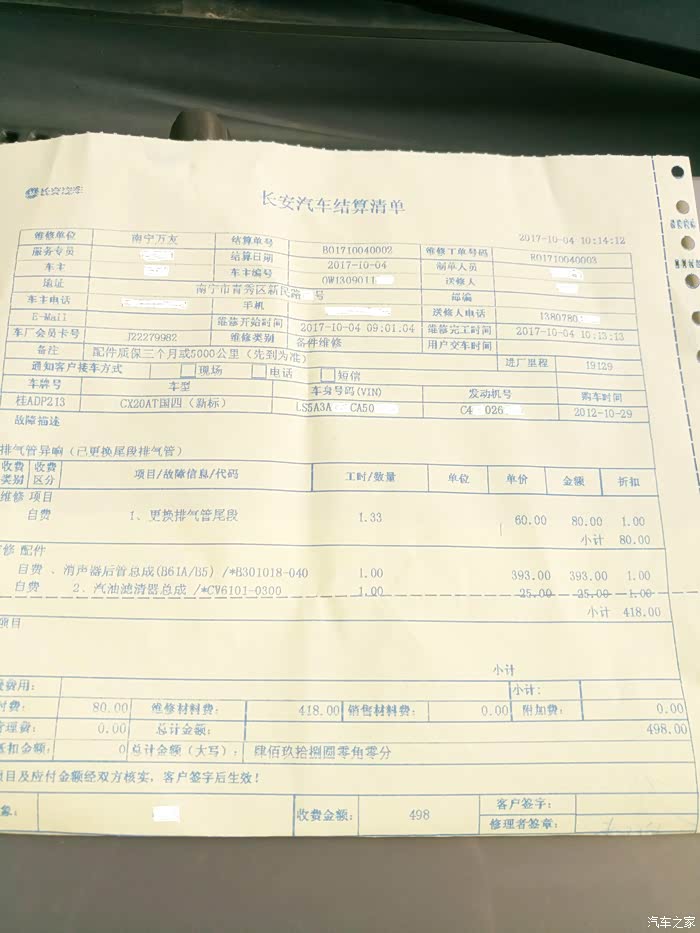 长安汽车
长安汽车结算清单
2017-10-04 10:14:12
维修单位 南宁万友 结算单号 BO1710040002 维修工单号码 RO1710040003
服务专员 结算日期 2017-10-04 制单人员
车主 车主编号 OW1309011 送修人
地址 南宁市青秀区新民路 号 邮编
车主电话 手机 送修人电话 1380780
E-Mail 维修开始时间 2017-10-04 09:01:04 维修完工时间 2017-10-04 10:13:13
车厂会员卡号 J22279982 维修类别 备件维修 用户交车时间
备注 配件质保三个月或5000公里(先到为准) 进厂里程 19129
通知客户接车方式 现场 电话 短信
车牌号 车型 车身号码(VIN) 发动机号 购车时间
桂ADP213 CX20AT国四(新标) LS5A3A CA50 C4 026 2012-10-29
故障描述
排气管异响(已更换尾段排气管)
收费类别 收费区分 项目/故障信息/代码 工时/数量 单位 单价 金额 折扣
维修 项目
自费 1、更换排气管尾段 1.33 60.00 80.00 1.00
小计 80.00
修 配件
自费 、消声器后管总成(B61A/B5) /*B301018-040 1.00 393.00 393.00 1.00
自费 2、汽油滤清器总成 /*CV6101-0300 1.00 25.00 25.00 1.00
小计 418.00
项目
小计
费用: 小计:
付费: 80.00 维修材料费: 418.00 销售材料费: 0.00 附加费: 0.00
管理费: 0.00 总计金额: 498.00
抵扣金额: 0 总计金额(大写): 肆佰玖拾捌圆零角零分
项目及应付金额经双方核实，客户签字后生效!
象: 收费金额: 498 客户签字:
修理者签章:
汽车之家